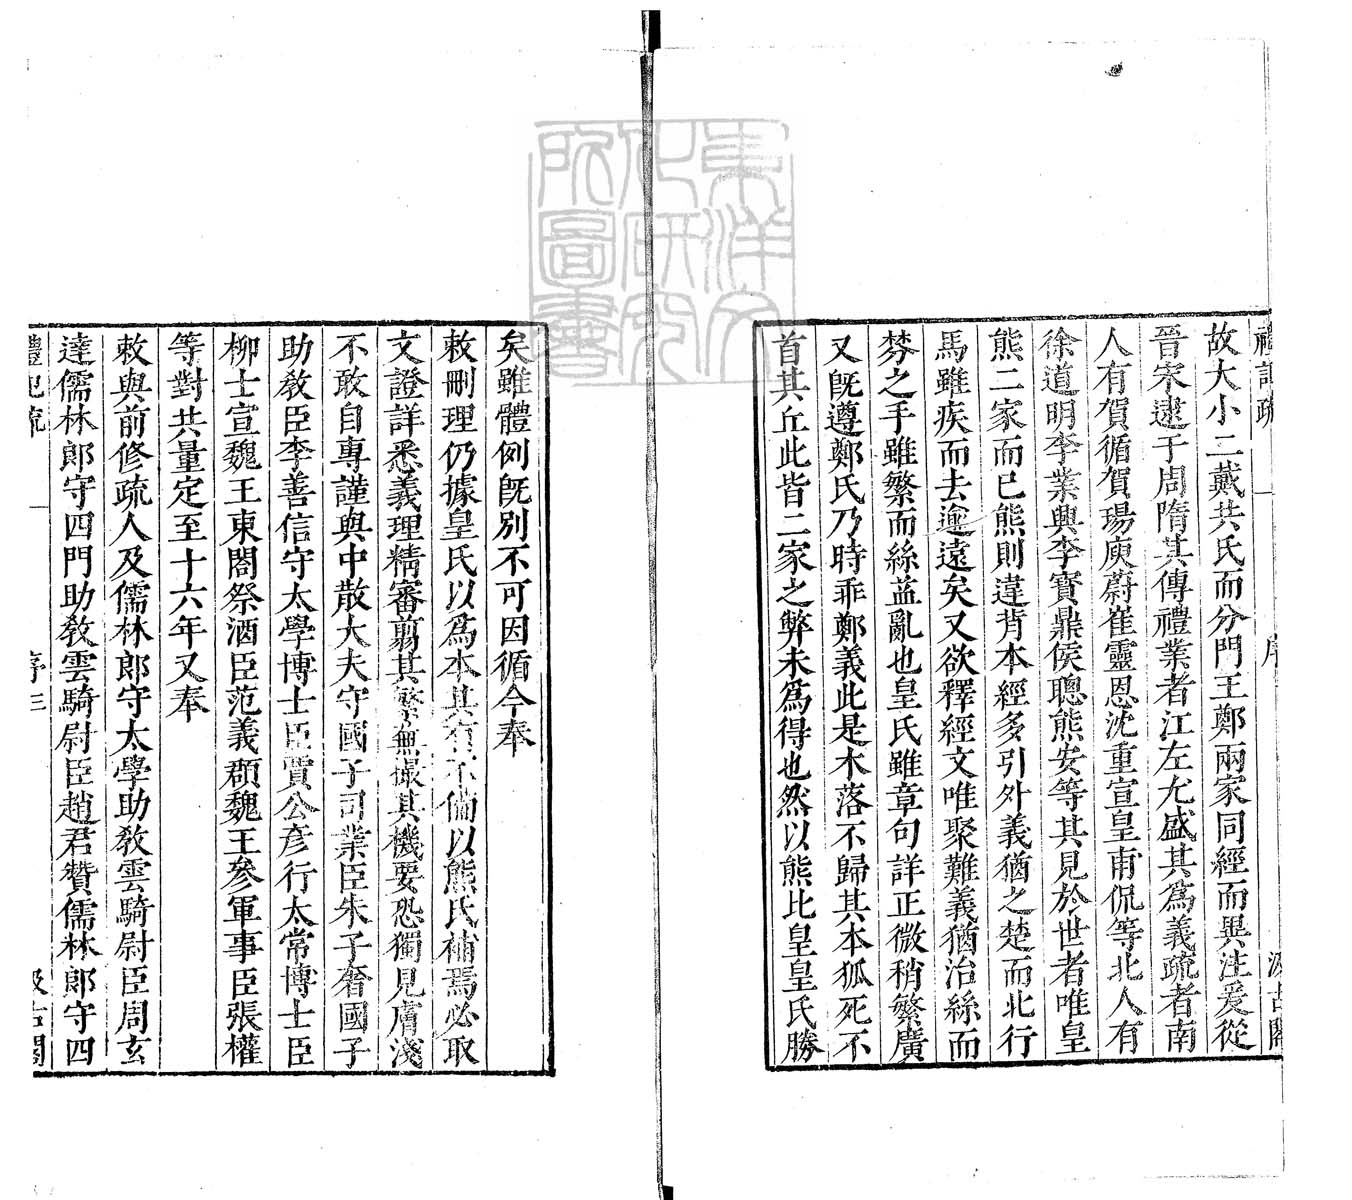 禮記疏 序 汲古閣
故大小二戴共氏而分門王鄭兩家同經而異注爰從
晉宋逮于周隋其傳禮業者江左尤盛其爲義疏者南
人有賀循賀瑒庾蔚崔靈恩沈重宣皇甫侃等北人有
徐道明李業興李寶鼎侯聰熊安等其見於世者唯皇
熊二家而已熊則違背本經多引外義猶之楚而北行
馬雖疾而去逾遠矣又欲釋經文唯聚難義猶治絲而
棼之手雖繁而絲益亂也皇氏雖章句詳正微稍繁廣
又旣遵鄭氏乃時乖鄭義此是木落不歸其本狐死不
首其丘此皆二家之弊未爲得也然以熊比皇皇氏勝
矣雖體例旣別不可因循今奉
敕刪理仍據皇氏以爲本其有不備以熊氏補焉必取
文證詳悉義理精審翦其繁蕪撮其機要恐獨見膚淺
不敢自專謹與中散大夫守國子司業臣朱子奢國子
助敎臣李善信守太學博士臣賈公彥行太常博士臣
柳士宣魏王東閣祭酒臣范義頵魏王參軍事臣張權
等對共量定至十六年又奉
敕與前修疏人及儒林郎守太學助敎雲騎尉臣周玄
達儒林郎守四門助敎雲騎尉臣趙君贊儒林郎守四
禮記疏 序 三 汲古閣
東洋文
化研究
所圖書